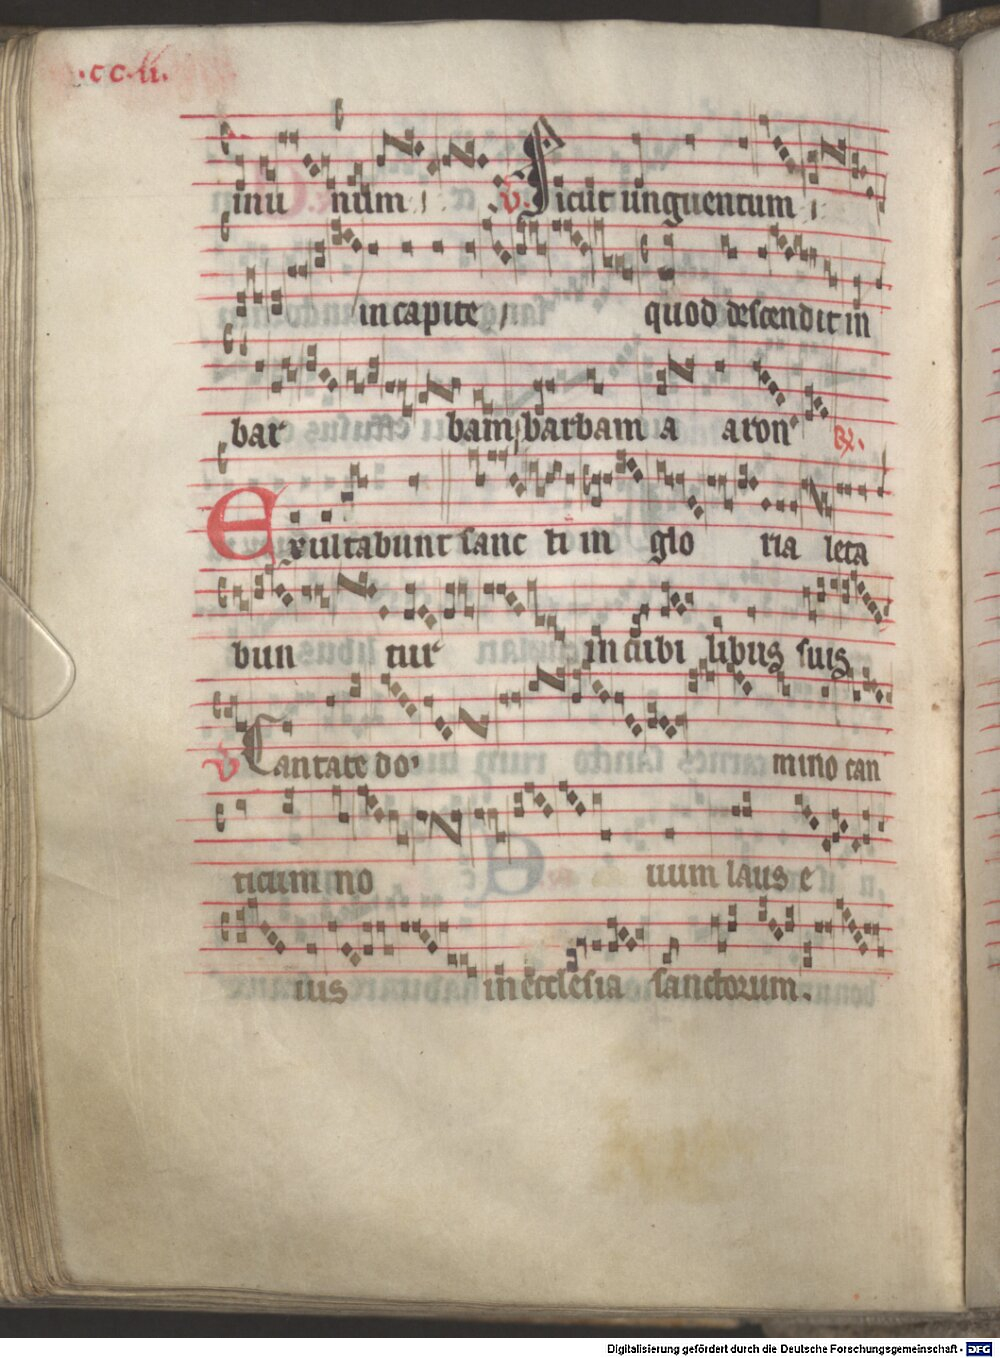 .cc.ii.
inu num v. Sicut unguentum
in capite quod descendit in
bar bam barbam a aron R.
Exultabunt sanc ti in glo ria leta
bun tur in cubi libus suis
v Cantate do mino can
ticum no uum laus e
ius in ecclesia sanctorum.
Digitalisierung gefördert durch die Deutsche Forschungsgemeinschaft - DFG